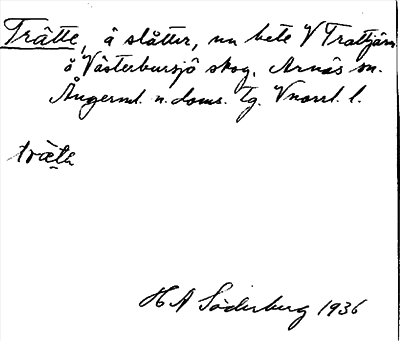 Trätte, å slåtter, nu bete V Trättjärn
å Västerbursjö skog. Arnäs sn.
Ångerml. n. doms. tg. Vnorrl. l.
trӕtɐ
H A Söderberg 1936